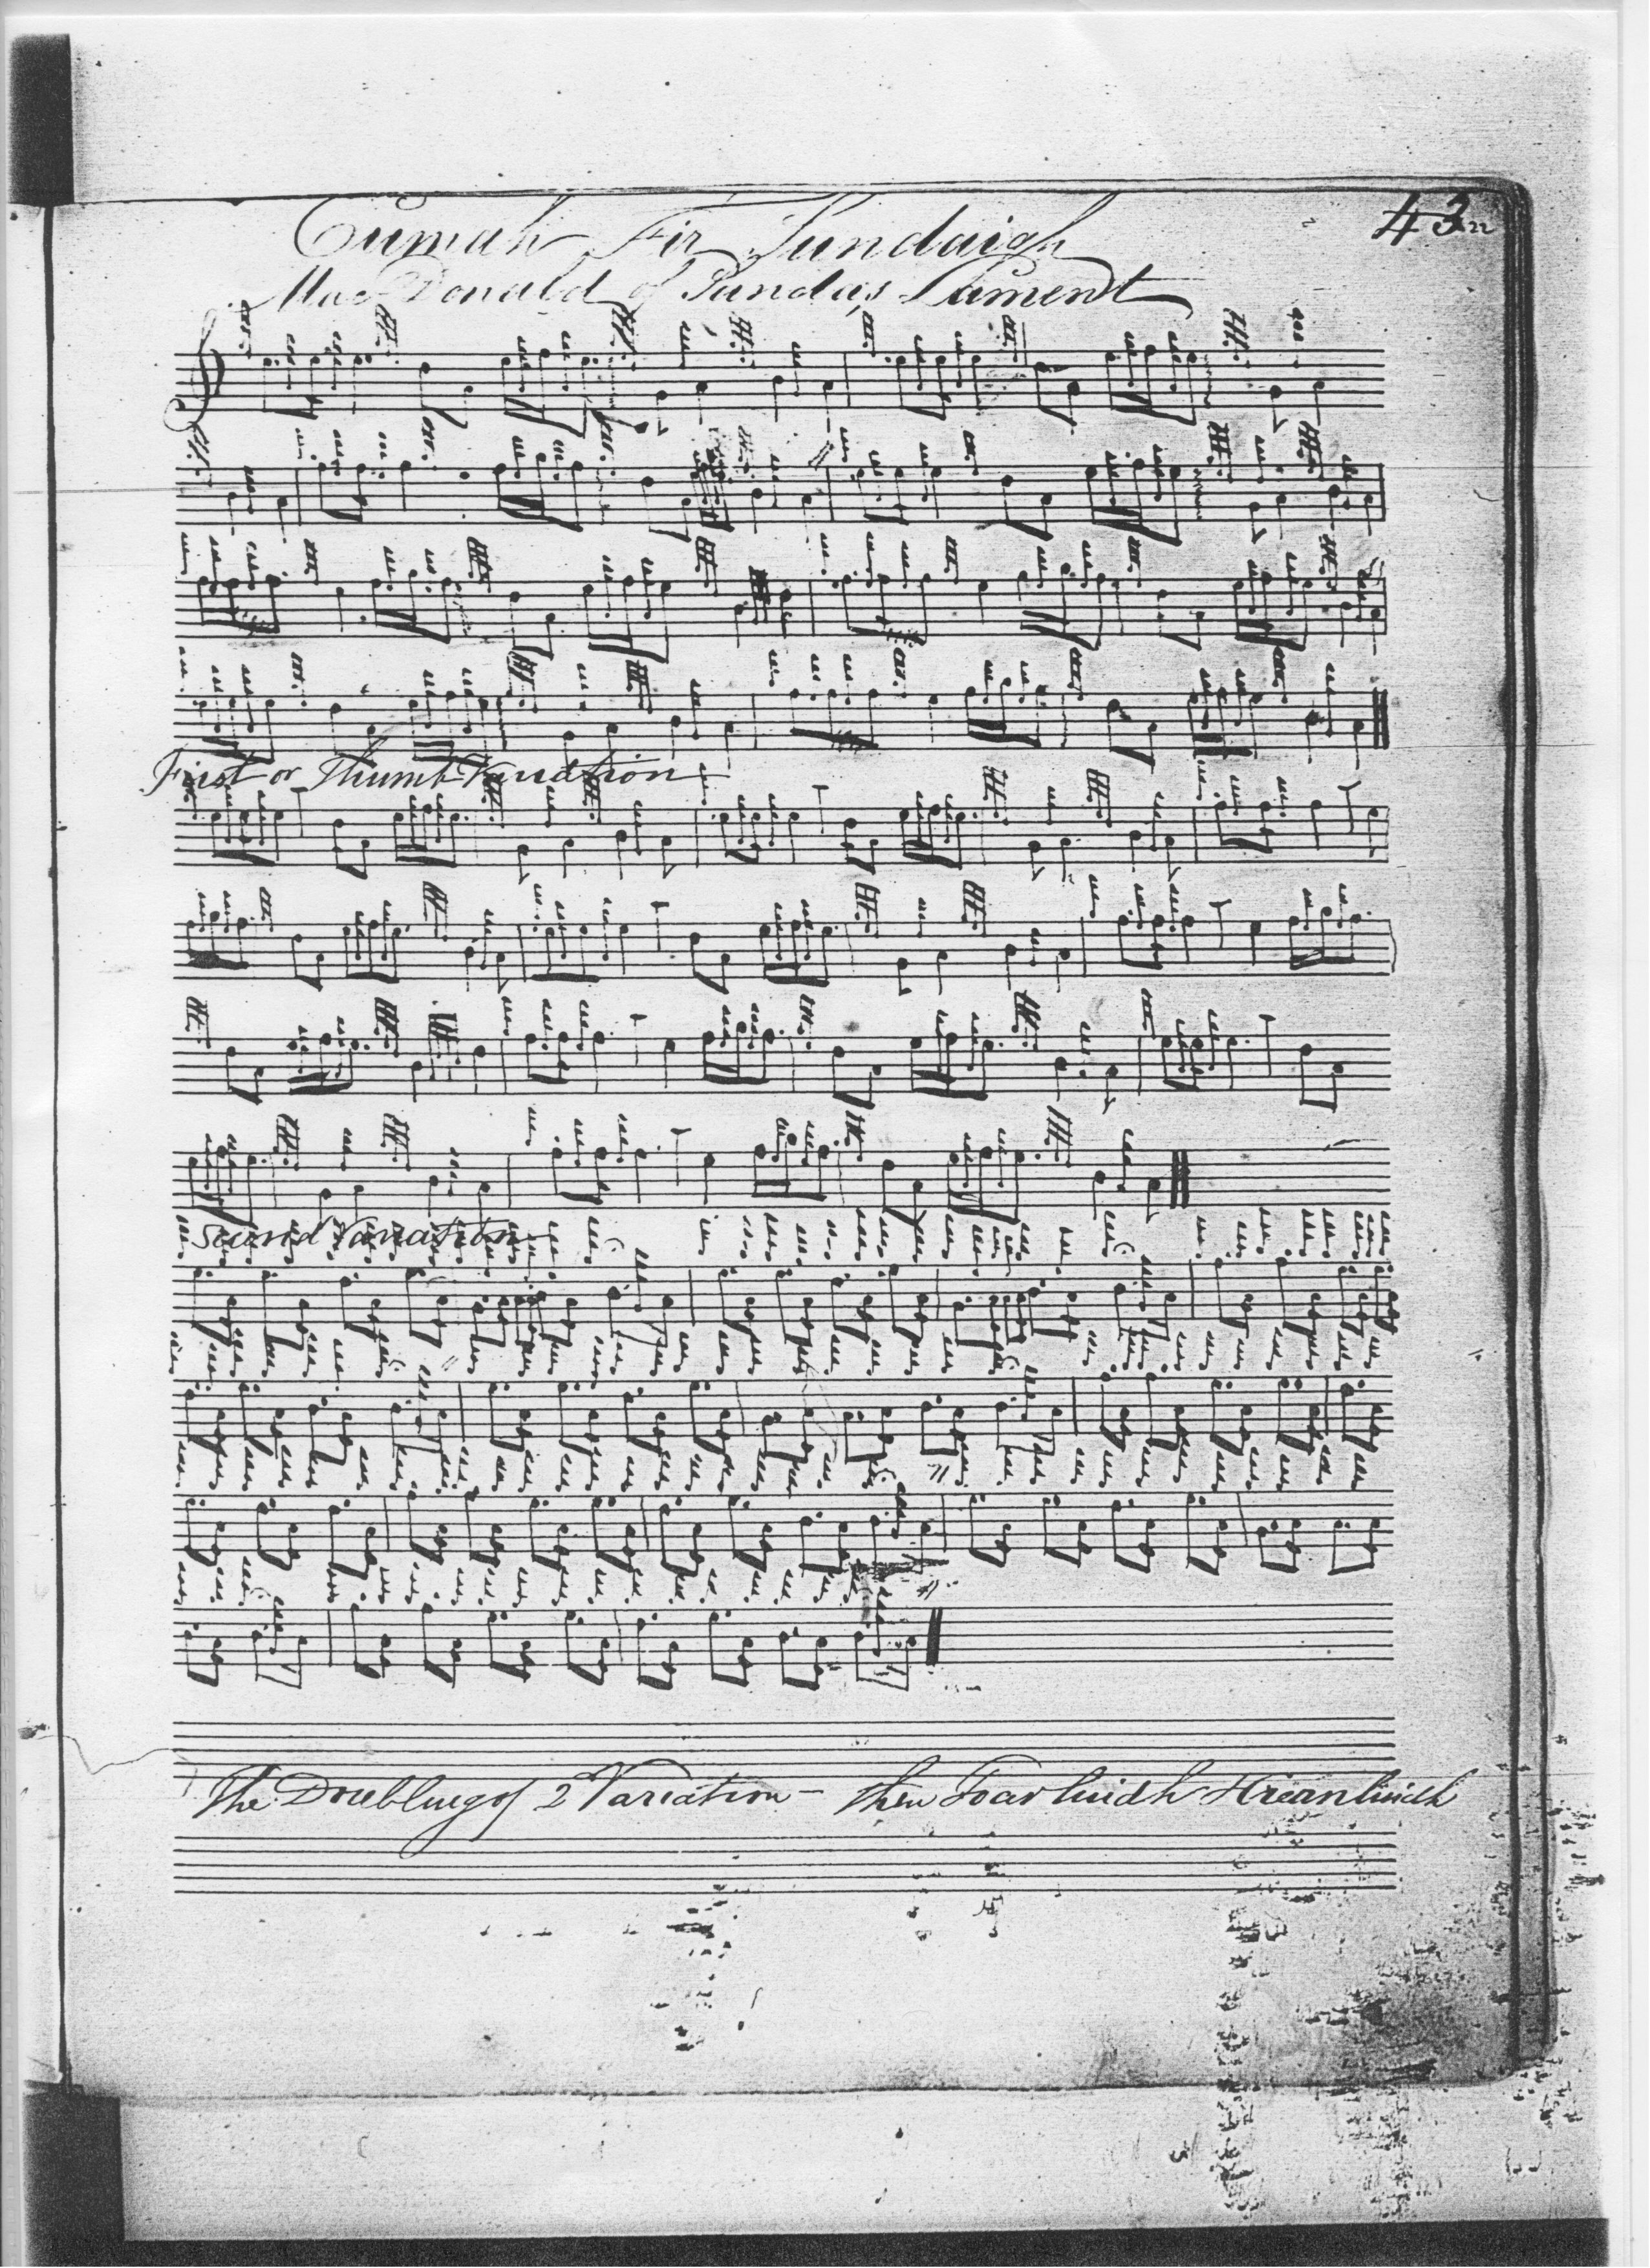 43
Cumah Fir Sundaigh
Mac Donald of Sanda's Lament
First or Thumb Variation
Second Variation
The Doubling of 2 Variation – then Toarluidh Hrianluidh